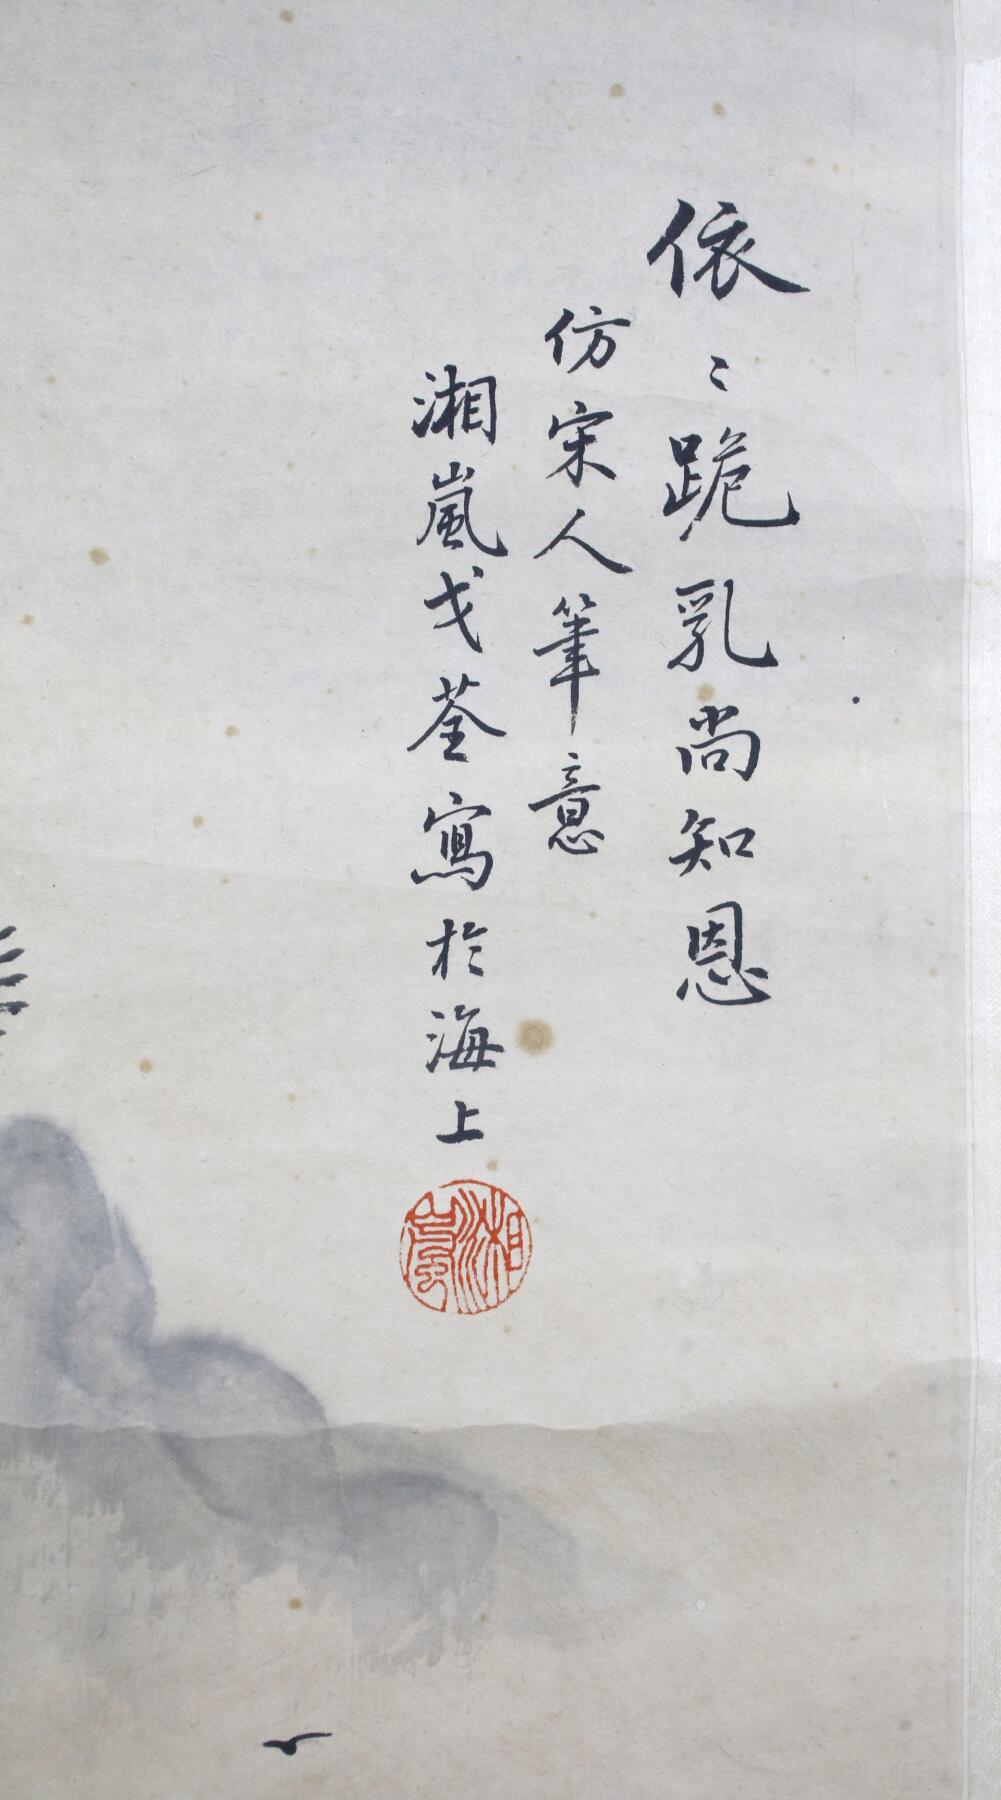 依〻跪乳尚知恩
仿宋人筆意
湘嵐戈荃寫於海上
湘嵐